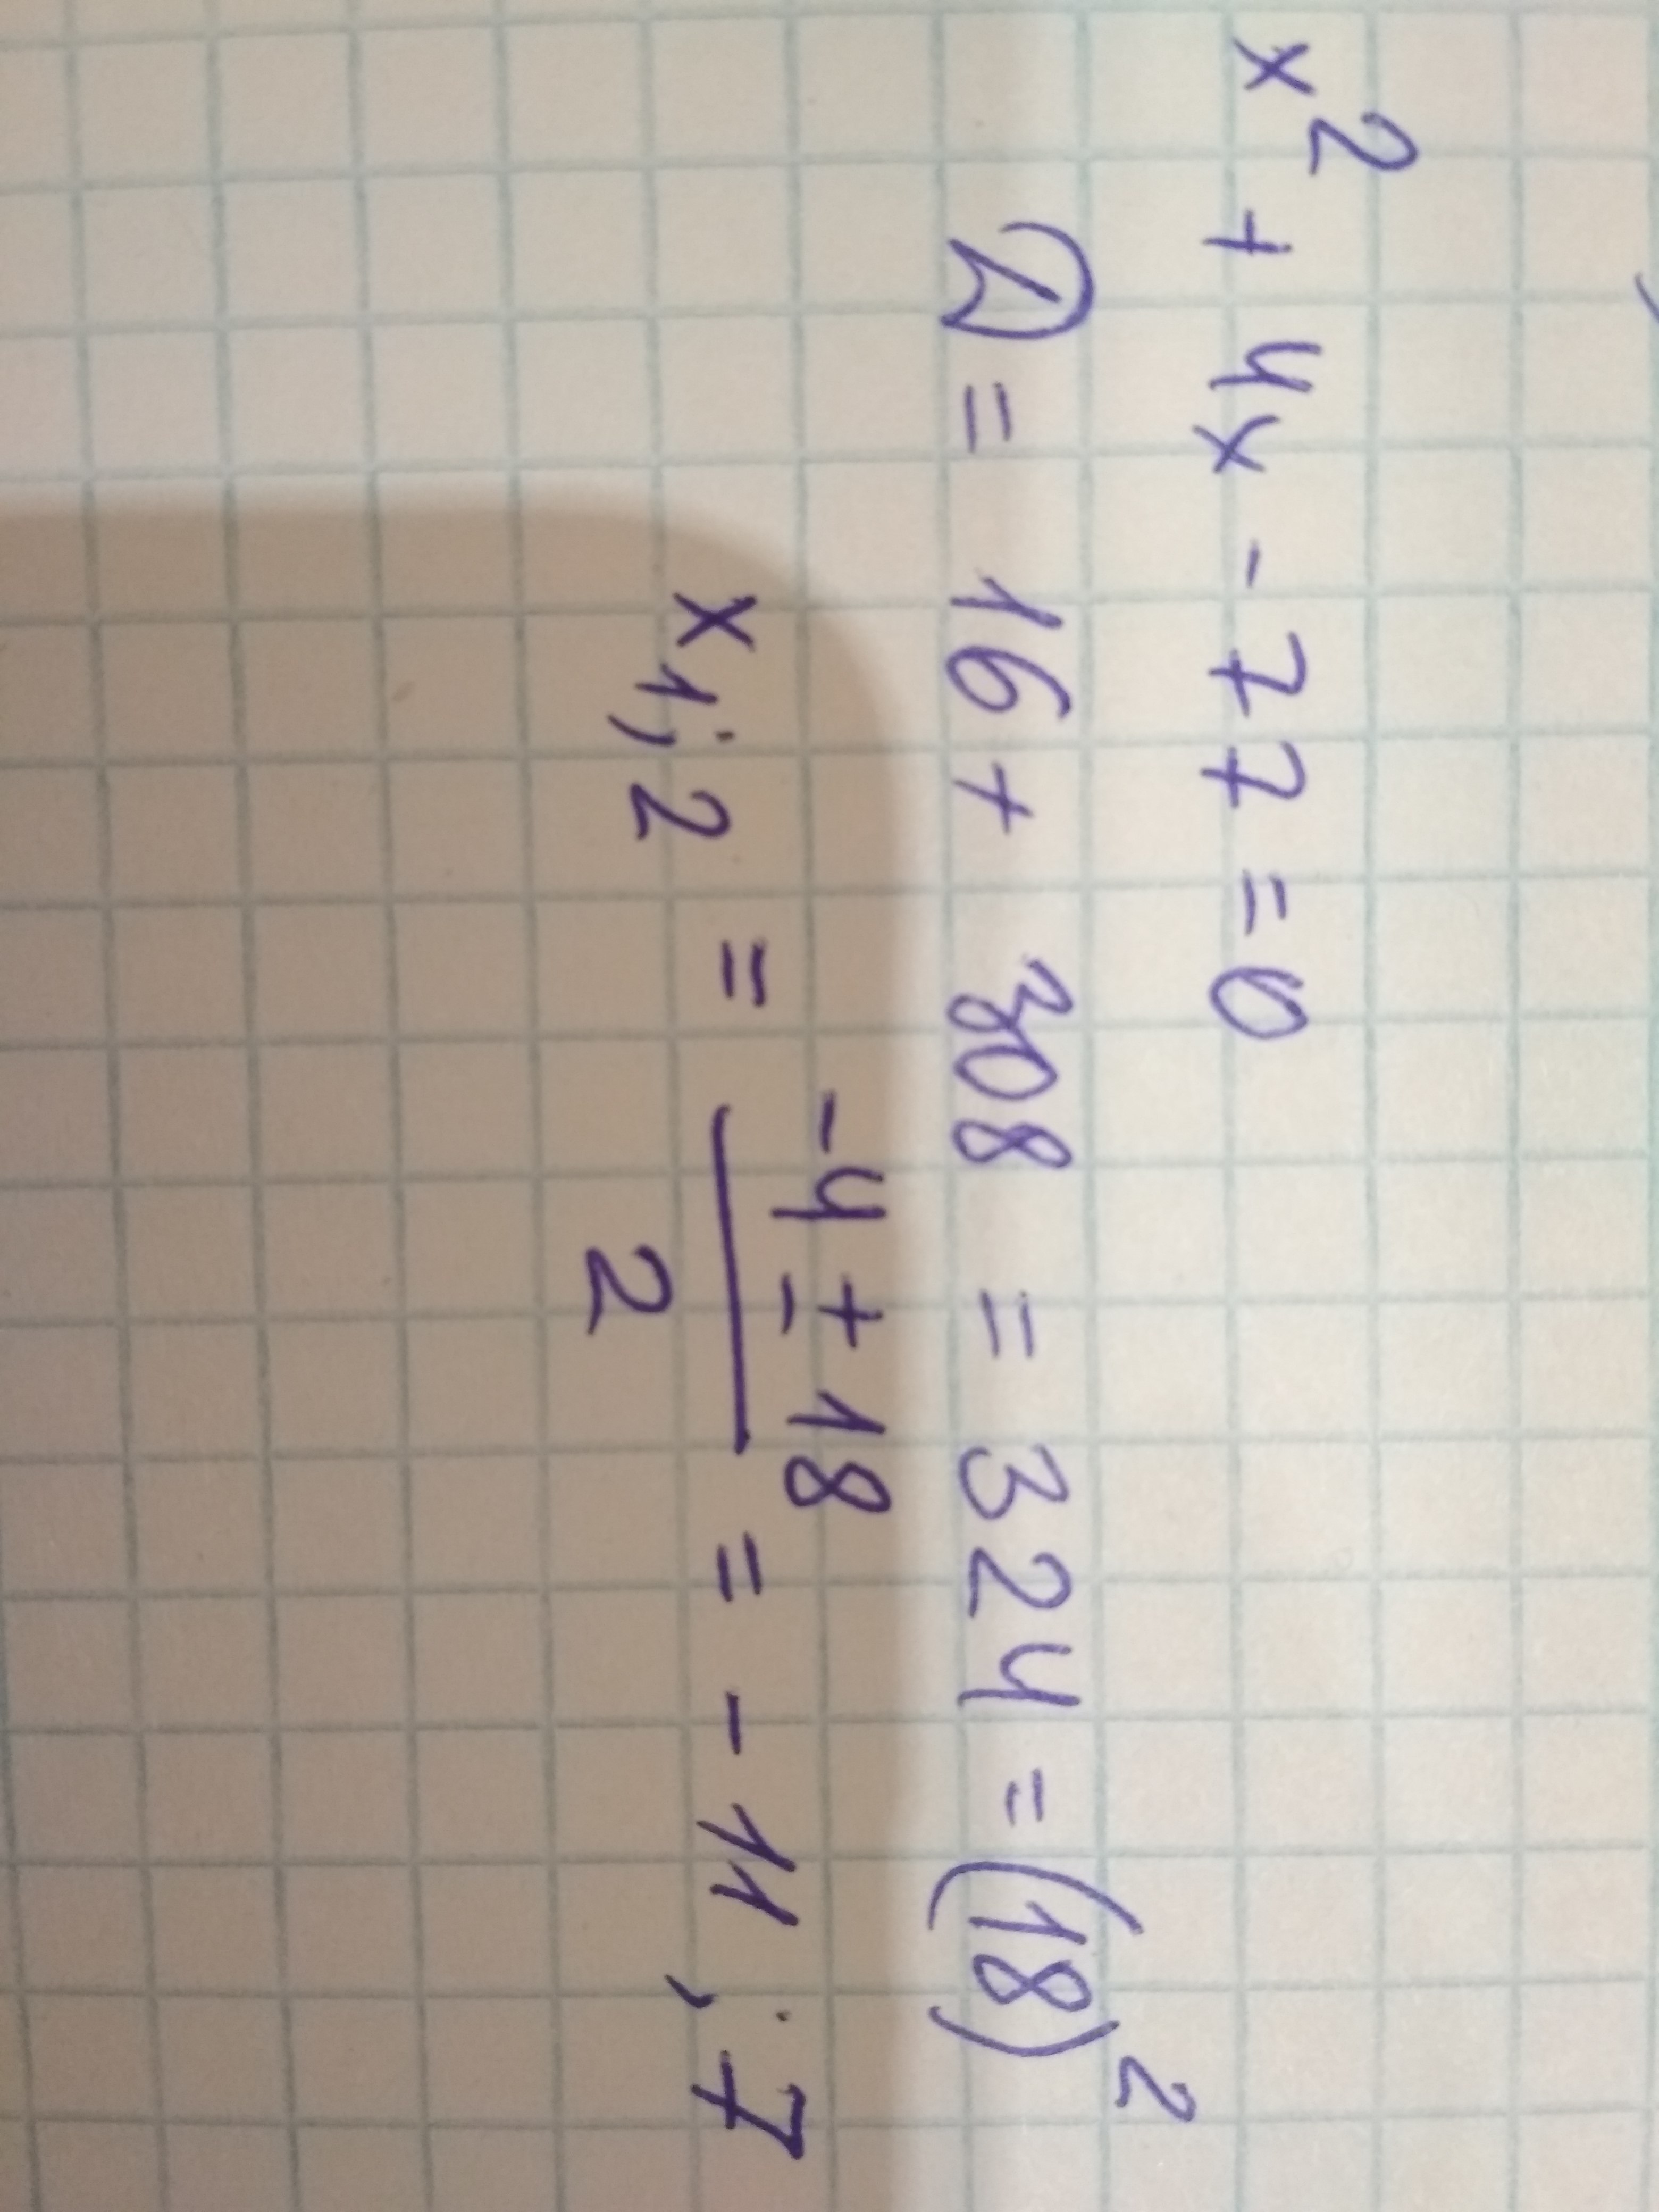 x² + 4x - 77 = 0
D = 16 + 308 = 324 = (18)²
x₁;₂ = (-4 ± 18) / 2 = - 11 ; 7